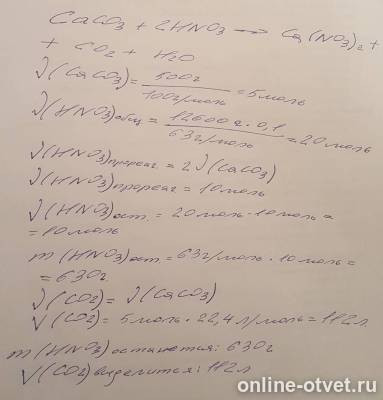 CaCO3 + 2HNO3 → Ca(NO3)2 +
+ CO2 + H2O
ν(CaCO3) = 500г / 100г/моль = 5моль
ν(HNO3)общ = 12600г · 0,1 / 63г/моль = 20моль
ν(HNO3)прореаг = 2ν(CaCO3)
ν(HNO3)прореаг = 10моль
ν(HNO3)ост. = 20моль - 10моль =
= 10моль
m(HNO3)ост = 63г/моль · 10моль =
= 630г.
ν(CO2) = ν(CaCO3)
V(CO2) = 5моль · 22,4л/моль = 112л.
m(HNO3) останется: 630г
V(CO2) выделится: 112л
online-otvet.ru